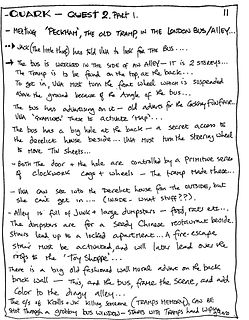 - QUARK - QUEST 2, Part 1.
11
- MEETING 'PECKHAM', THE OLD TRAMP IN THE LONDON BUS/ALLEY...
→ Jack (the little thug) has told VISH to look for the BUS....
→ The bus is wrecked in the side of an Alley - IT is 2 STOREYS...
The Tramp is to be found on the top, at the back...
To get in, Vish must turn the front wheel which is suspended
above the ground because of the Angle of the bus....
The bus has advertising on it - old adverts for the
Vish to activate 'Map'...
The bus has a big hole at the back - a secret access to
the derelict house beside... Vish must turn the steering wheel
to move the sheets...
- Both the door + the hole are controlled by a primitive series
of clockwork cogs + wheels - The tramp made these...
- Vish can see into the Derelict house from the outside, but
she can't get in.... (inside - what stuff???).
- Alley is full of Junk + large dumpsters - food, rats etc...
The dumpsters are for a seedy Chinese restaurant beside.
Stairs lead up to a locked apartment... A fire-escape
stair must be activated, and will later lead over the
roofs to the "Toy Shoppe"...
There is a big old fashioned wall mural advert on the back
brick wall - This, and the bus, frame the scene, and add
color to the dingy alley...
The c/s of killing Someone (TRAMPS MEMORY), can be
shot through a grubby bus window - starts with Tramps hand wiping